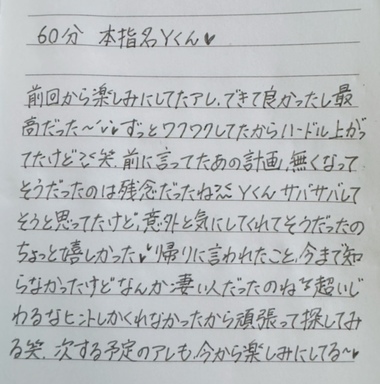 60分 本指名Yくん♥
前回から楽しみにしてたアレ、できて良かったし最
高だった〜ずっとワクワクしてたからハードル上がっ
てたけど笑、前に言ってたあの計画、無くなって
そうだったのは残念だったね Yくんサバサバして
そうと思ってたけど、意外と気にしてくれてそうだったの
ちょっと嬉しかった 帰りに言われたこと、今まで知
らなかったけどなんか凄い人だったのね 超いじ
わるなヒントしかくれなかったから頑張って探してみ
る笑、次する予定のアレも、今から楽しみにしてる〜♥